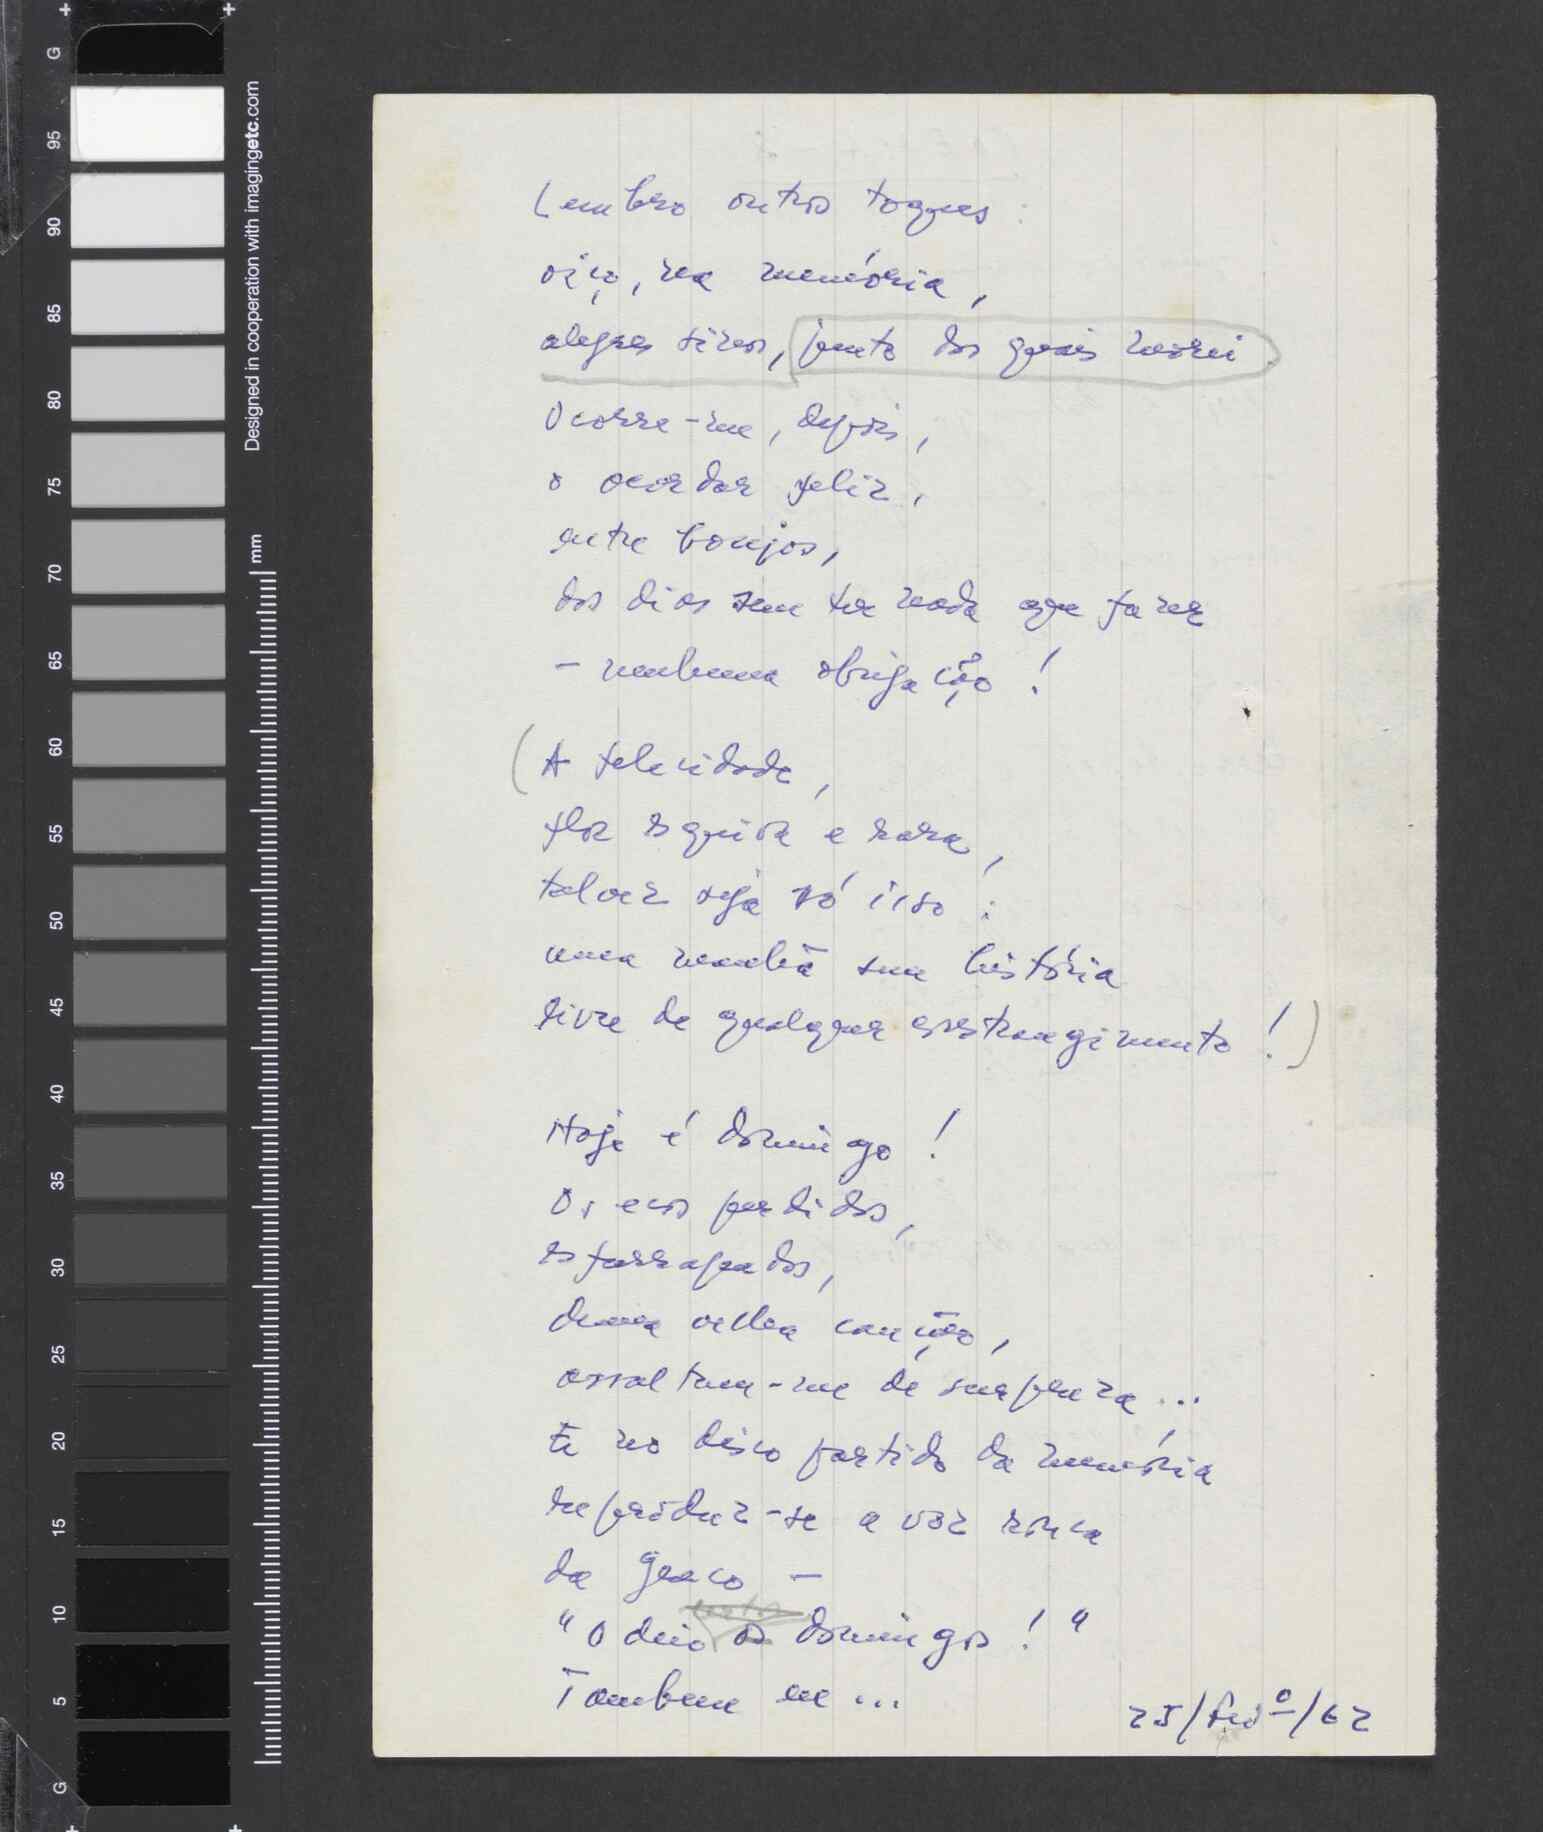 G
95
90
85
80
75
70
65
60
55
50
45
40
35
30
25
20
15
10
5
G
Designed in cooperation with imagingetc.com
mm
Lembro outros toques:
oiço, na memória,
alegres sinos, junto dos quais morei.
Ocorre-me, depois,
o acordar feliz,
entre bocejos,
dos dias sem ter nada que fazer
– nenhuma obrigação!
(A felicidade,
flor esquiva e rara,
talvez seja só isso:
uma manhã sem história
livre de qualquer constrangimento!)
Hoje é domingo!
Os ecos perdidos,
esfarrapados,
duma velha canção,
assaltam-me de surpresa...
E no disco partido da memória
reproduz-se a voz rouca
da Greco –
"Odeio os domingos!"
Também eu...
25/fevº/62